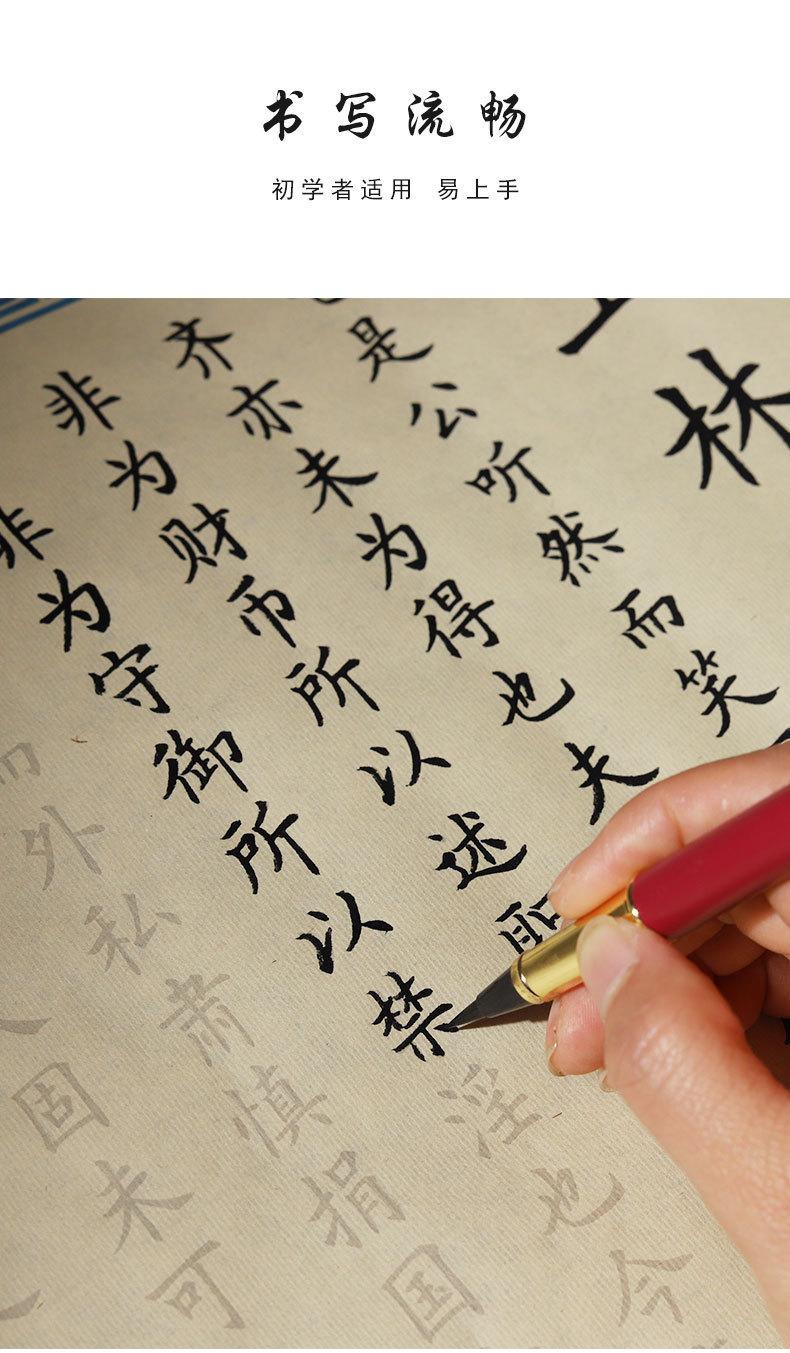 书写流畅
初学者适用 易上手
林
是公听然而笑
齐亦未为得也夫
非为财币所以述
非为守御所以禁淫也今
而外私肃慎捐国
固未可